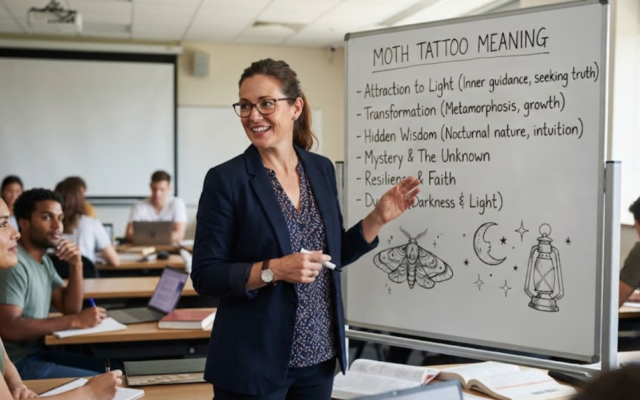 MOTH TATTOO MEANING
- Attraction to Light (Inner guidance, seeking truth)
- Transformation (Metamorphosis, growth)
- Hidden Wisdom (Nocturnal nature, intuition)
- Mystery & The Unknown
- Resilience & Faith
- (Darkness & Light)